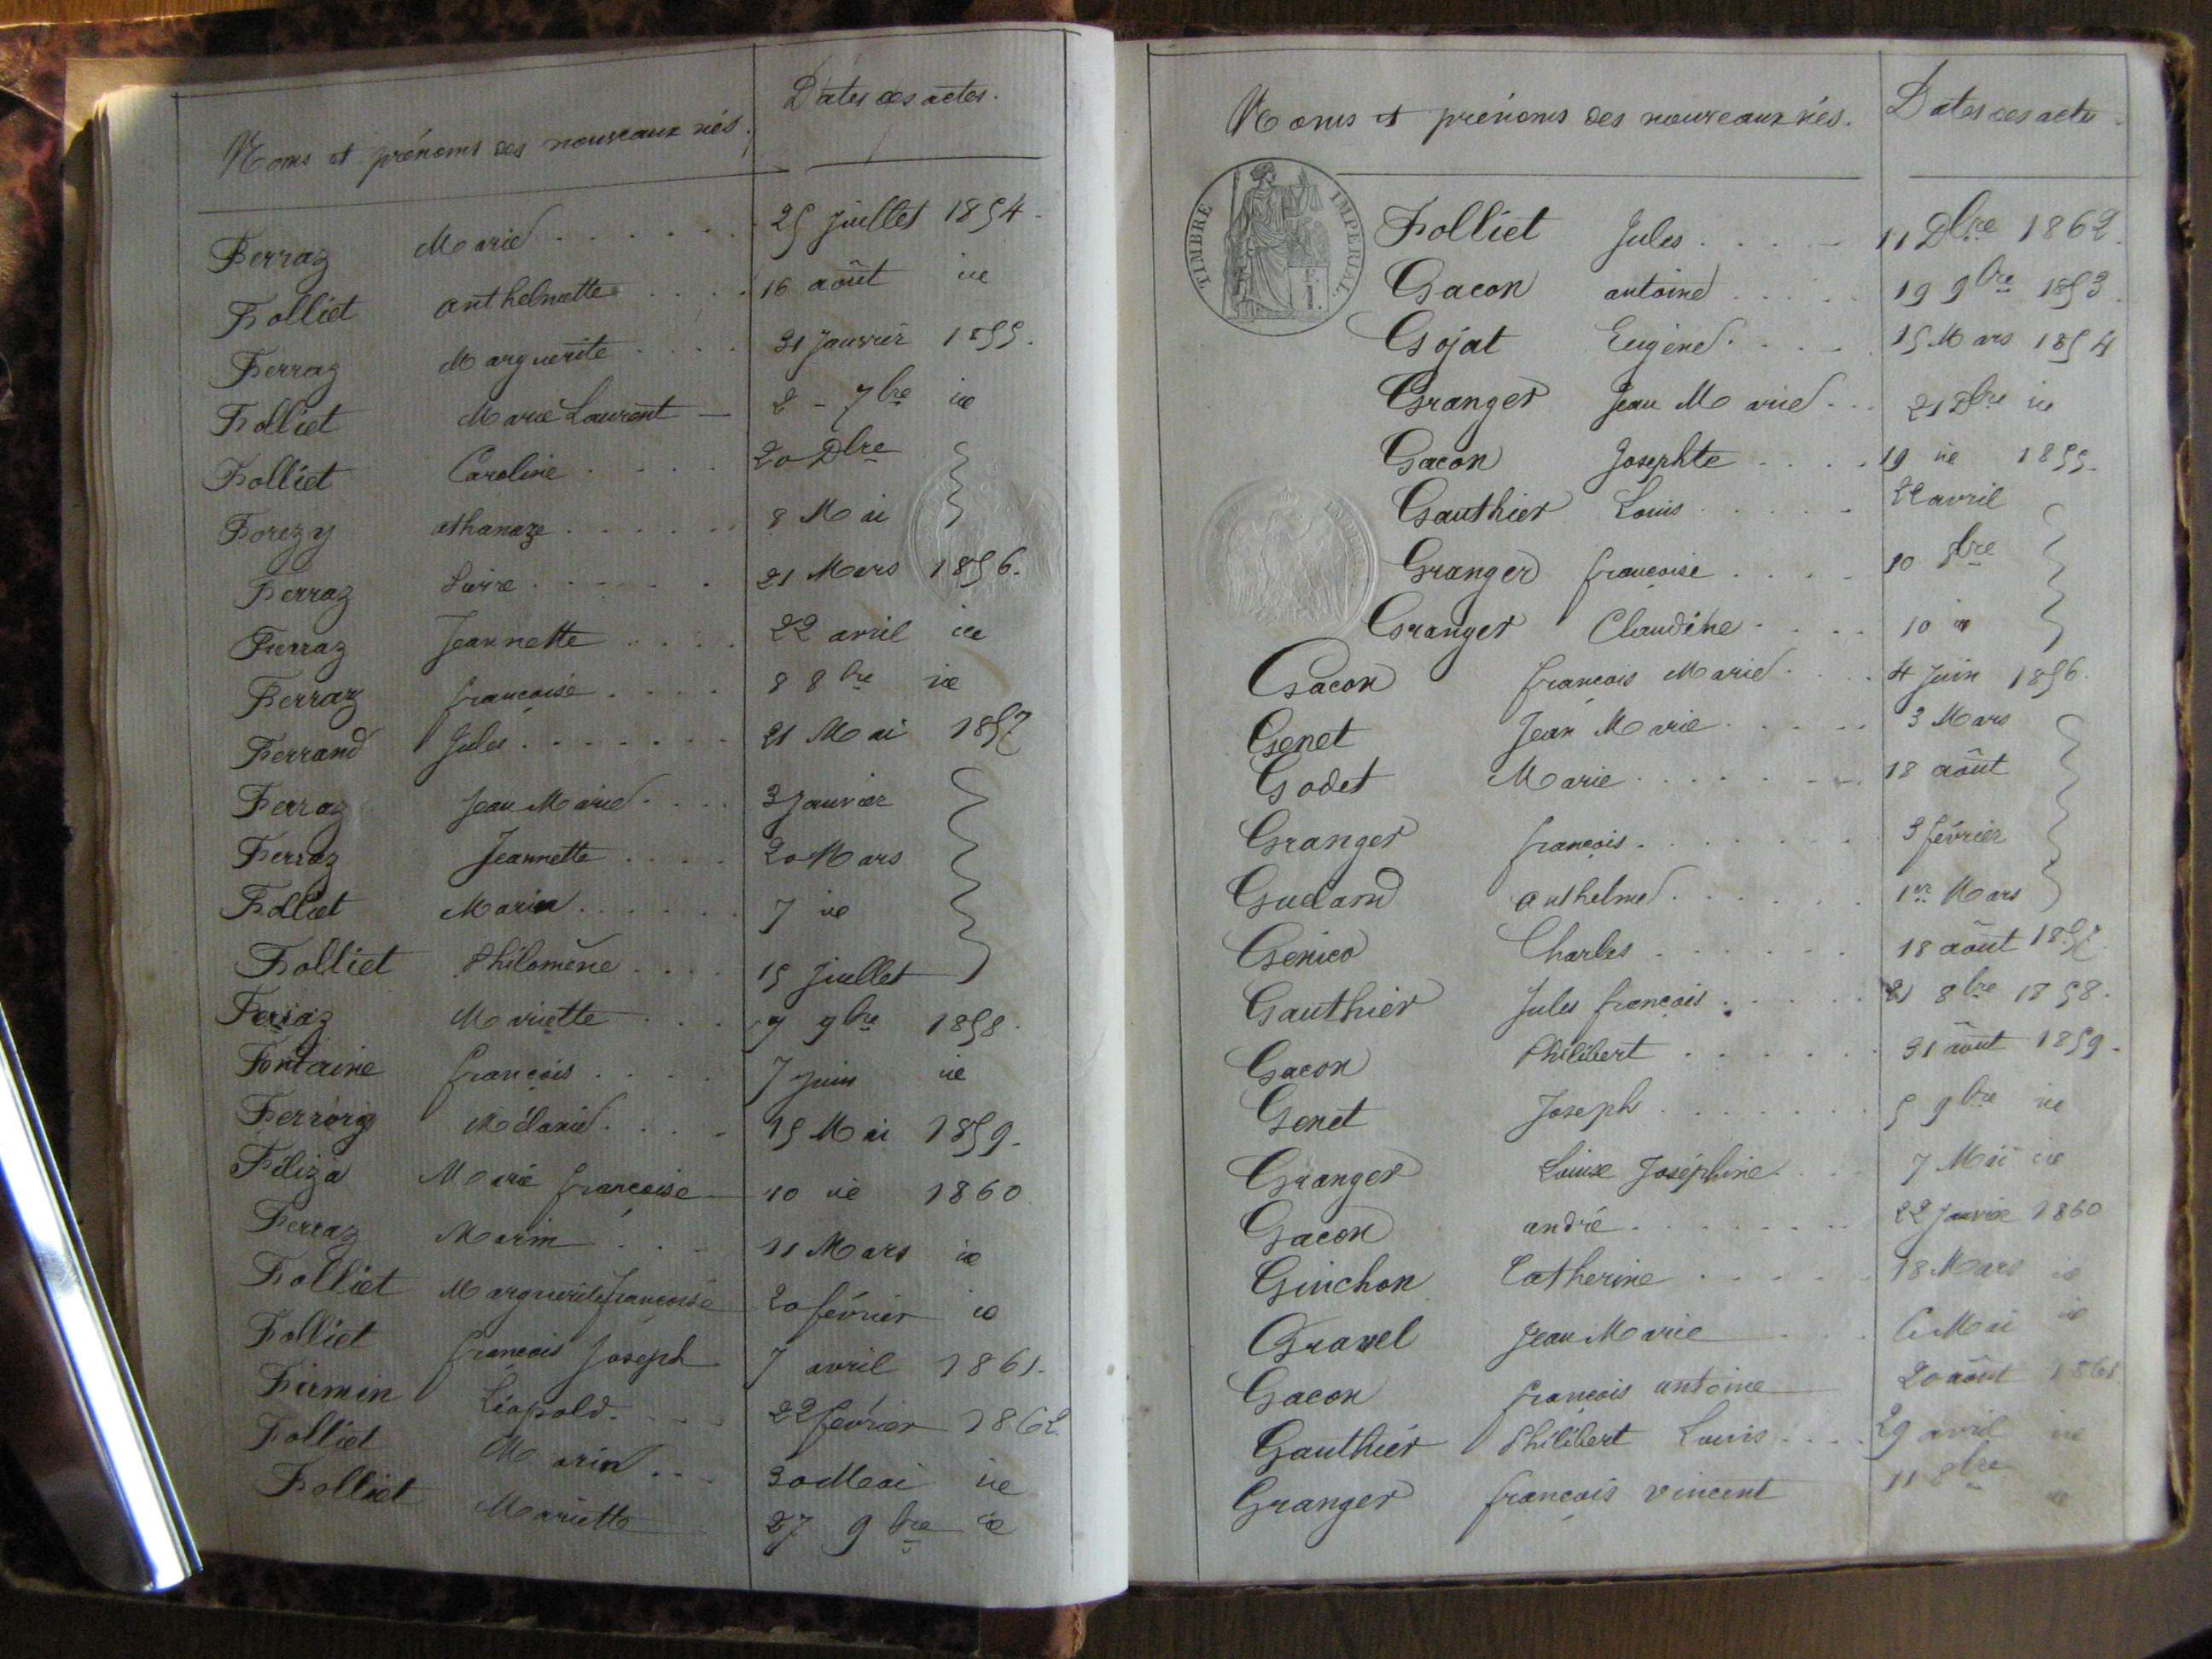 Noms et prénoms des nouveaux nés. Dates des actes.
Ferraz Marie 25 juillet 1854
Folliet anthelmette 16 août id
Ferraz Marguerite 31 Janvier 1855.
Folliet Marie Laurent 2 - 7bre id
Folliet Caroline 20 Dbre
Forezy athanaze 8 Mai
Ferraz 21 Mars 1856.
Ferraz Jeannette 22 avril id
Ferraz françoise 8 8bre id
Ferrand Jules 21 Mai 1857
Ferraz Jean Marie 3 Janvier
Ferraz Jeannette 20 Mars
Folliet Maria 7 id
Folliet Philomène 15 Juillet
Ferraz Mariette 7 9bre 1858.
Fontaine françois 7 Juin id
Mélanie 15 Mai 1859.
Féliza Marie françoise 10 id 1860
Ferraz Marin 11 Mars id
Folliet Marguerite françoise 20 février id
Folliet françois Joseph 7 avril 1861.
Firmin Léopold 22 février 1862
Folliet Marin 30 Mai id
Folliet Mariette 27 9bre id
Noms et prénoms des nouveaux nés. Dates des actes.
TIMBRE IMPERIAL
Folliet Jules 11 Dbre 1862.
Gacon antoine 19 9bre 1853.
Gojat Eugène 15 Mars 1854
Granger Jean Marie 21 Dbre id
Gacon Josephte 19 id 1855.
Gauthier Louis 22 avril
Granger françoise 10 8bre
Granger Claudine 10 id
Gacon françois Marie 4 Juin 1856.
Genet Jean Marie 3 Mars
Godet Marie 18 août
Granger françois 3 février
anthelme 1er Mars
Charles 18 août 1857.
Gauthier Jules françois 21 8bre 1858.
Gacon Philibert 31 août 1859.
Genet Joseph 5 9bre id
Granger Louise Joséphine 7 Mai id
Gacon andré 22 Janvier 1860
Guichon Catherine 18 Mars id
Gravel Jean Marie 6 Mai id
Gacon françois antoine 20 août 1861
Gauthier Philibert Louis 29 avril id
Granger françois vincent 11 8bre id